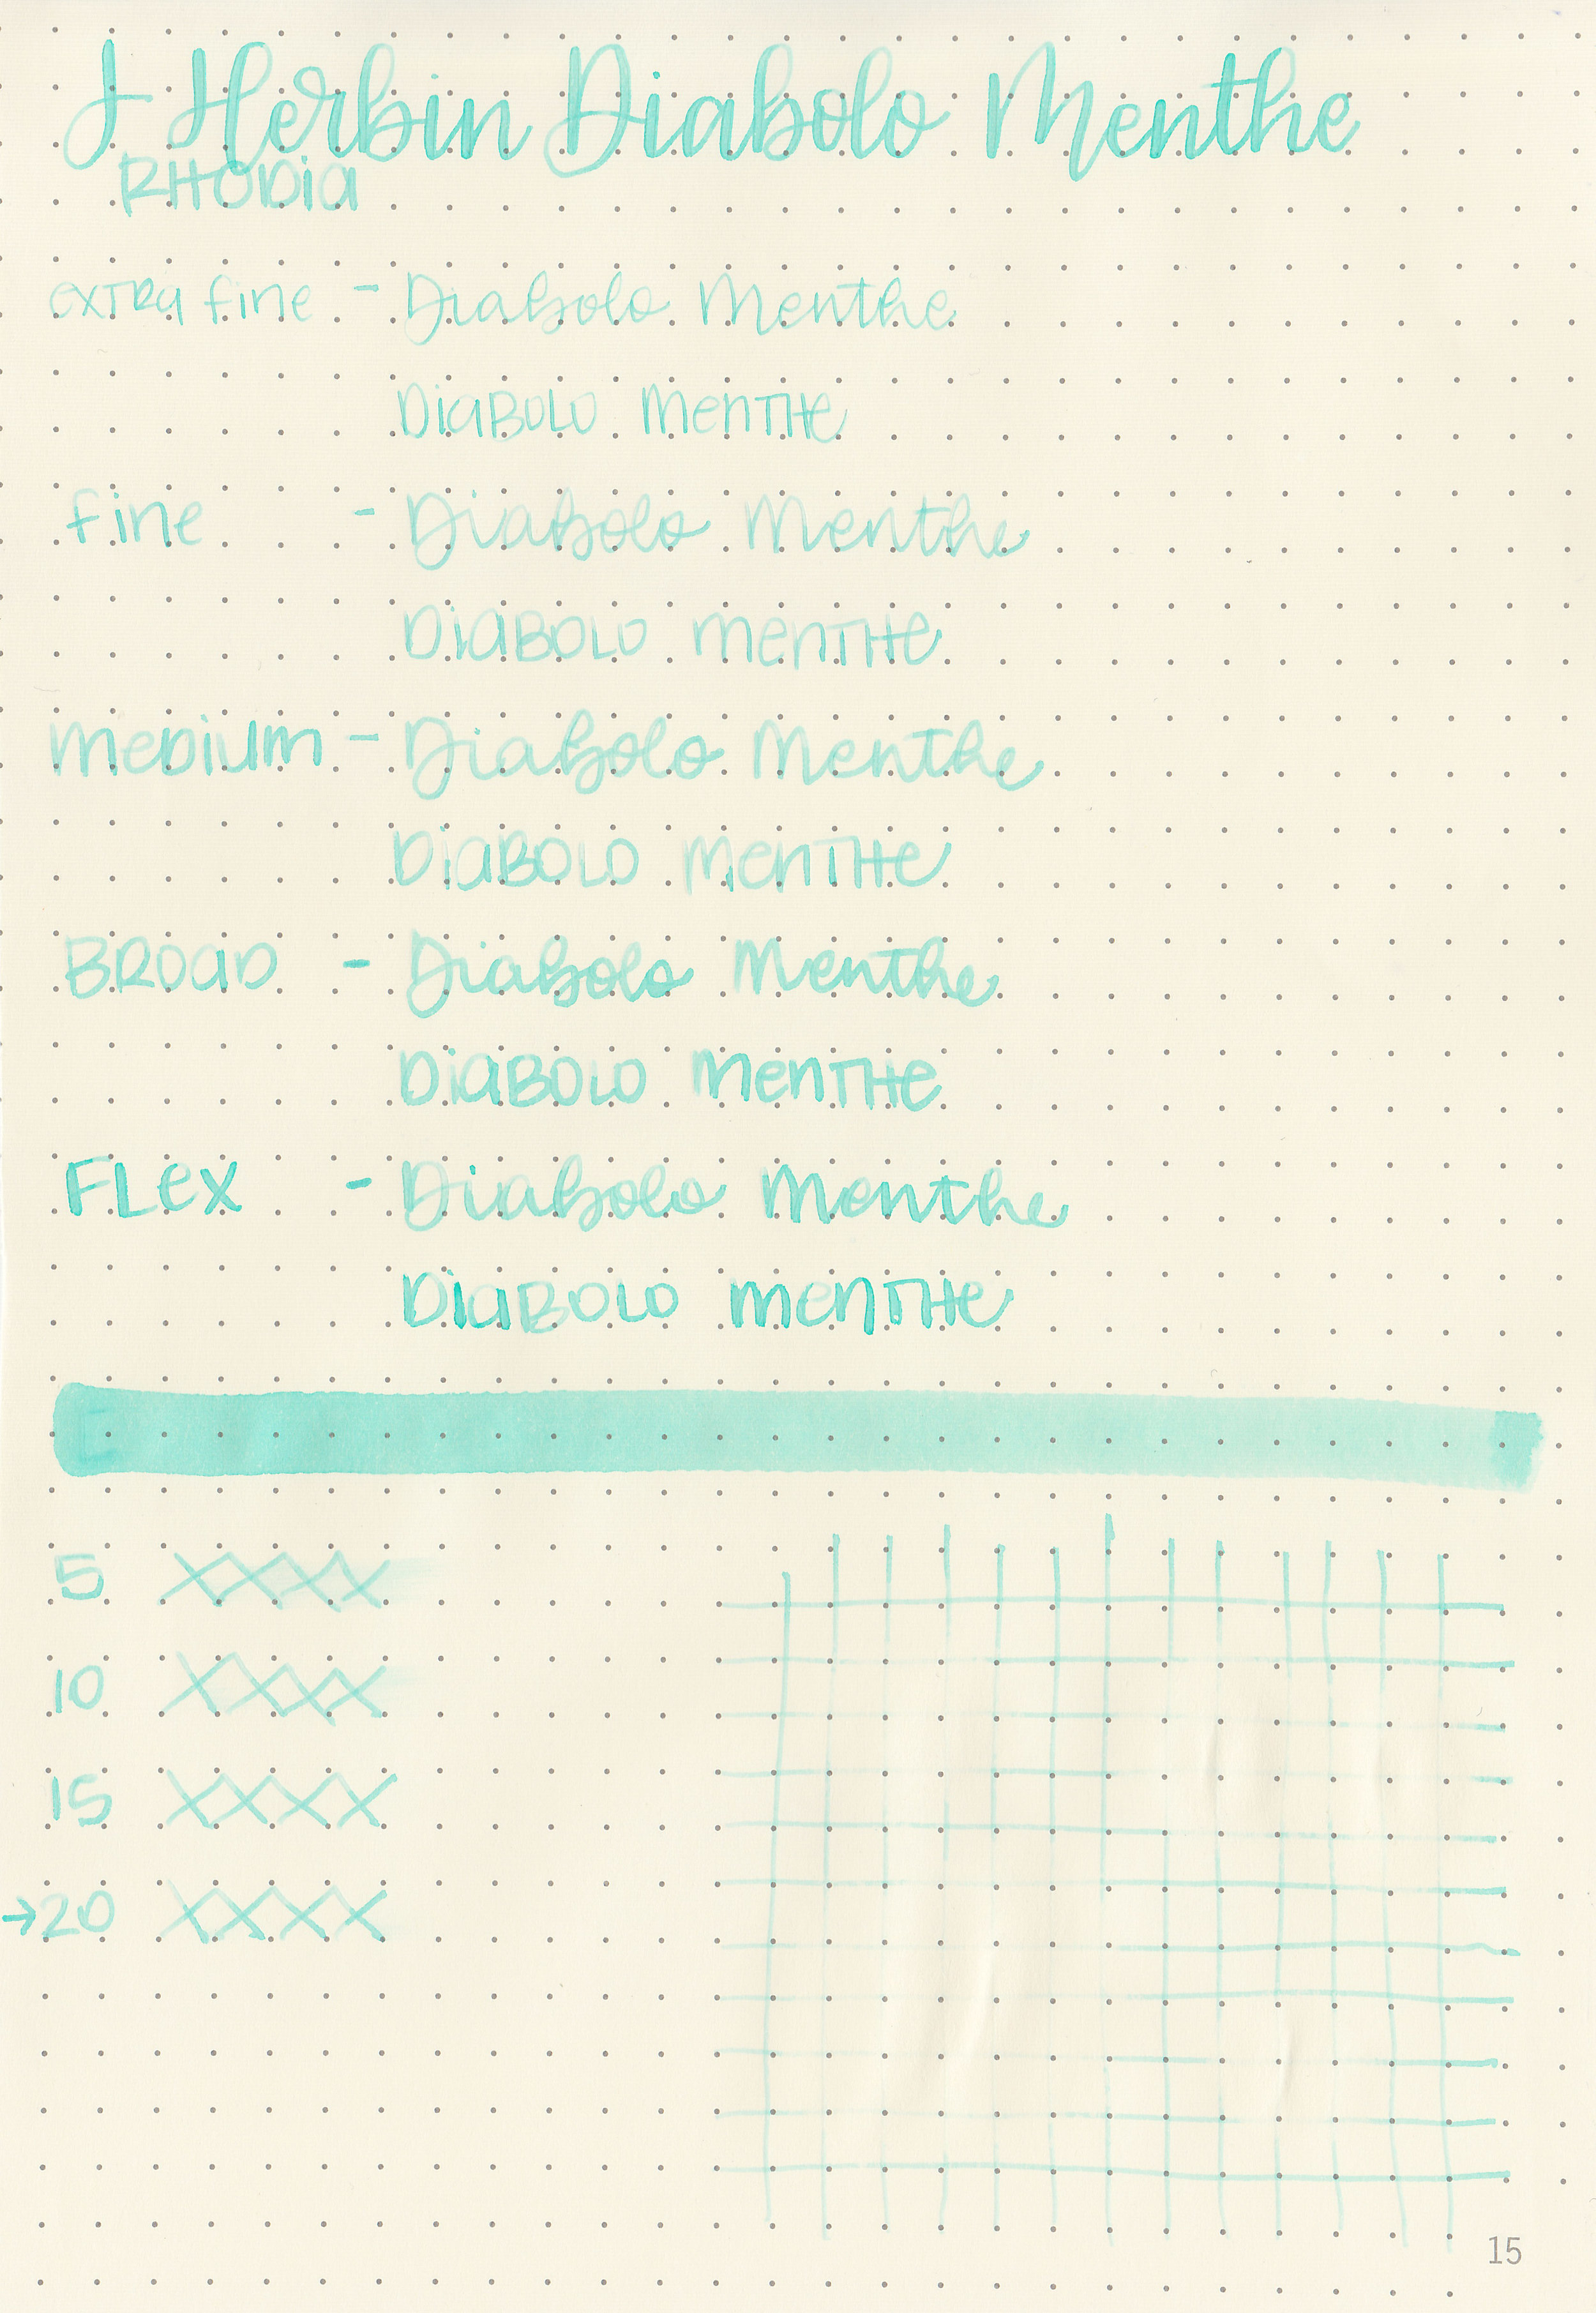 J Herbin Diabolo Menthe
RHODia
exTRa fine - Diabolo Menthe
DiaBOLO MenTHe
fine - Diabolo Menthe
DiaBOLO MenTHe
MeDiUM - Diabolo Menthe
DiaBOLO MenTHe
BROaD - Diabolo Menthe
DiaBOLO MenTHe
FLex - Diabolo Menthe
DiaBOLO MenTHe
5 XXXX
10 XXXX
15 XXXX
→20 XXXX
15